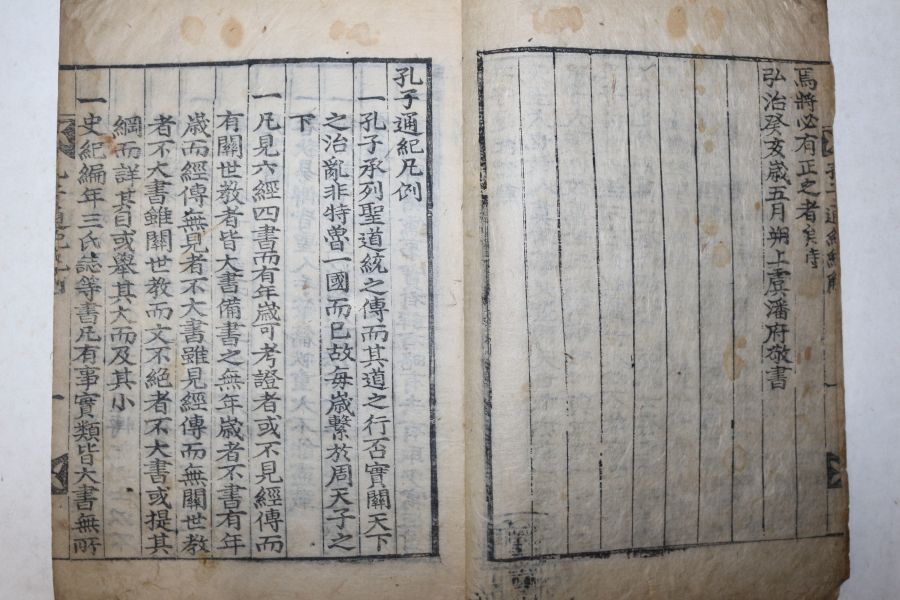 焉將必有正之者矣時
弘治癸亥歲五月朔上虞潘府敬書
孔子通紀凡例
一孔子承列聖道統之傳而其道之行否實關天下
之治亂非特魯一國而已故每歲繫於周天子之
下
一凡見六經四書而有年歲可考證者或不見經傳而
有關世教者皆大書備書之無年歲者不書有年
歲而經傳無見者不大書雖見經傳而無關世教
者不大書雖關世教而文不絕者不大書或提其
綱而詳其目或舉其大而及其小
一史紀編年三氏誌等書凡有事實類皆大書無所